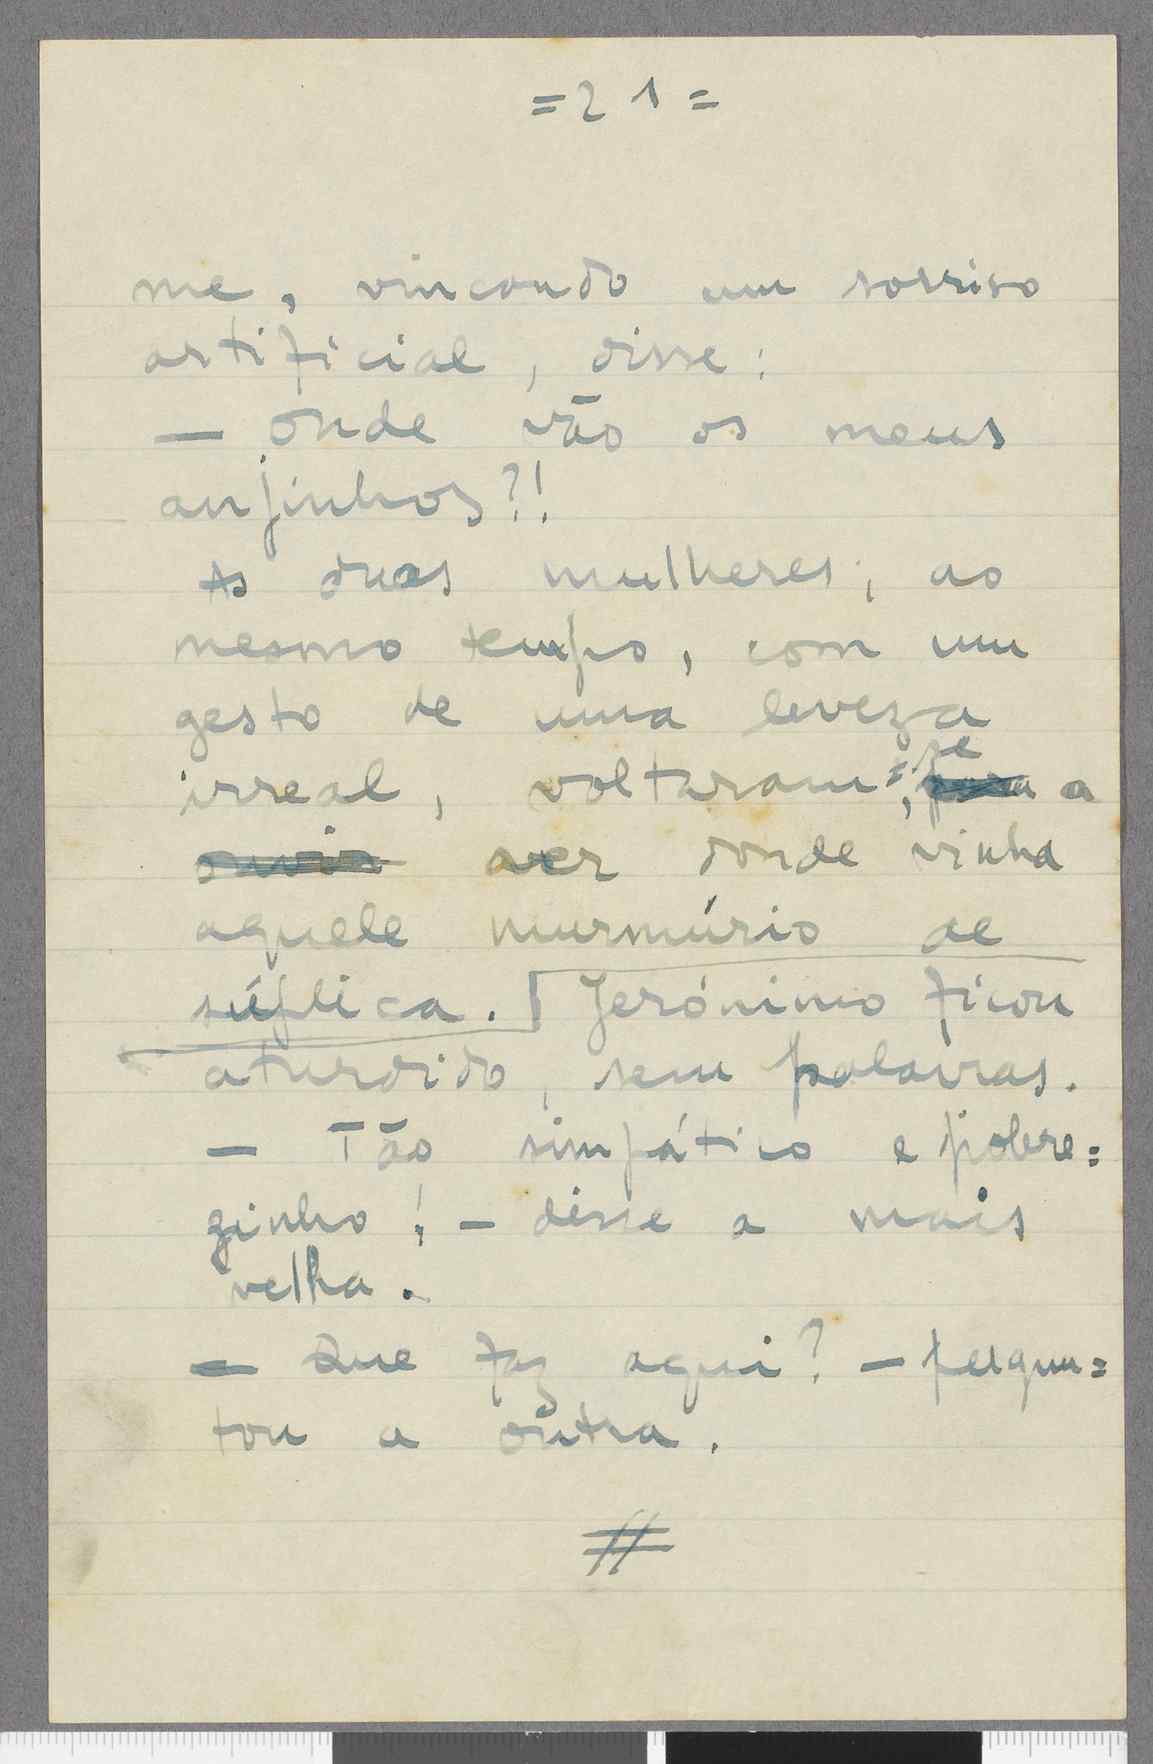 =21=
me, vincando um sorriso
artificial, disse:
— Onde vão os meus
anjinhos?!
As duas mulheres, ao
mesmo tempo, com um
gesto de uma leveza
irreal, voltaram=se para a
ouvir ver donde vinha
aquele murmúrio de
súplica. Jerónimo ficou
aturdido, sem palavras.
— Tão simpático e pobre=
zinho! — disse a mais
velha.
— Que faz aqui? — pergun=
tou a outra.